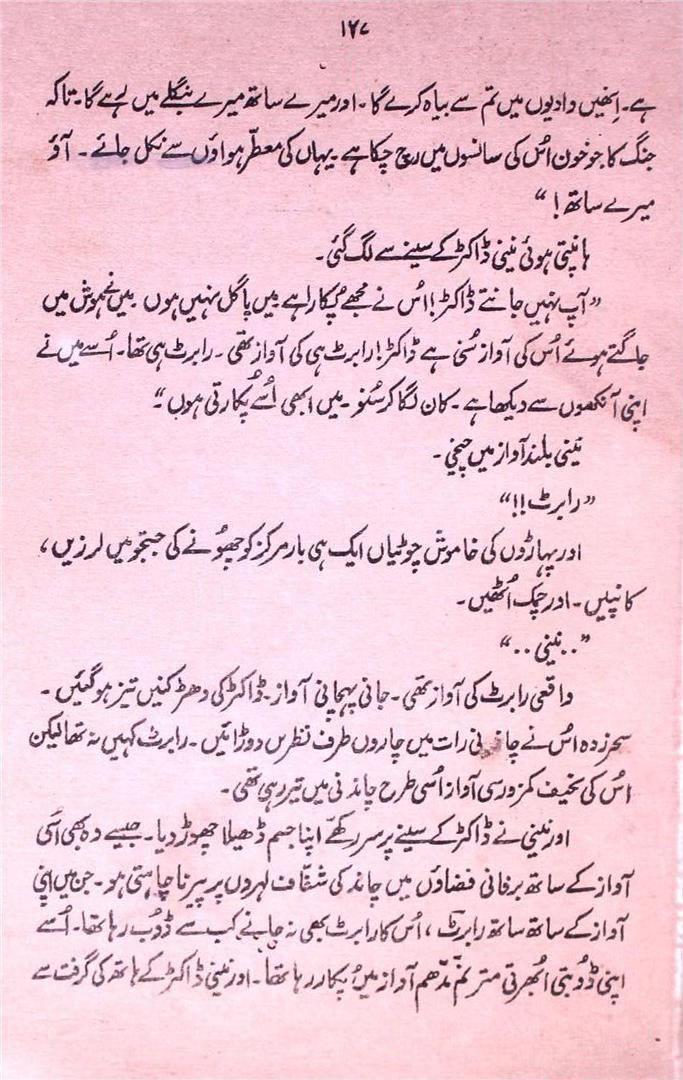 ۱۲۷
ہے۔ اِنھیں وادیوں میں تم سے بیاہ کرے گا۔ اور میرے ساتھ میرے بنگلے میں رہے گا۔ تاکہ
جنگ کا جو خون اُس کی سانسوں میں رچ چکا ہے۔ یہاں کی معطّر ہواؤں سے نکل جائے۔ آؤ
میرے ساتھ! “
ہانپتی ہوئی نینی ڈاکٹر کے سینے سے لگ گئی۔
”آپ نہیں جانتے ڈاکٹر!! اُس نے مجھے پُکارا ہے میں پاگل نہیں ہوں میں نے ہوش میں
جاگتے ہوئے اُس کی آواز سُنی ہے ڈاکٹر! رابرٹ ہی کی آواز تھی۔ رابرٹ ہی تھا۔ اُسے میں نے
اپنی آنکھوں سے دیکھا ہے۔ کان لگا کر سُنو۔ میں ابھی اُسے پُکارتی ہوں“۔
نینی بلند آواز میں چیخی۔
”رابرٹ!!“
اور پہاڑوں کی خاموش چوٹیاں ایک ہی بار مرکز کو چھُونے کی جستجو میں لرزیں،
کانپیں۔ اور چمک اُٹھیں۔
”.. نینی ..“
واقعی رابرٹ کی آواز تھی۔ جانی پہچانی آواز۔ ڈاکٹر کی دھڑکنیں تیز ہوگئیں۔
سحر زدہ اُس نے چاندنی رات میں چاروں طرف نظریں دوڑائیں۔ رابرٹ کہیں نہ تھا لیکن
اُس کی نحیف کمزور سی آواز اُسی طرح چاندنی میں تیر رہی تھی۔
اور نینی نے ڈاکٹر کے سینے پر سر رکھّے اپنا جسم ڈھیلا چھوڑ دیا۔ جیسے وہ بھی اسُی
آواز کے ساتھ برفانی فضاؤں میں چاند کی شفّاف لہروں پر پیرنا چاہتی ہو۔ جن میں اپنی
آواز کے ساتھ ساتھ رابرٹ، اُس کا رابرٹ بھی نہ جانے کب سے ڈوُب رہا تھا۔ اُسے
اپنی ڈوُبتی اُبھرتی مترنّم مدّھم آواز میں پکار رہا تھا۔ اور نینی ڈاکٹر کے ہاتھ کی گرفت سے